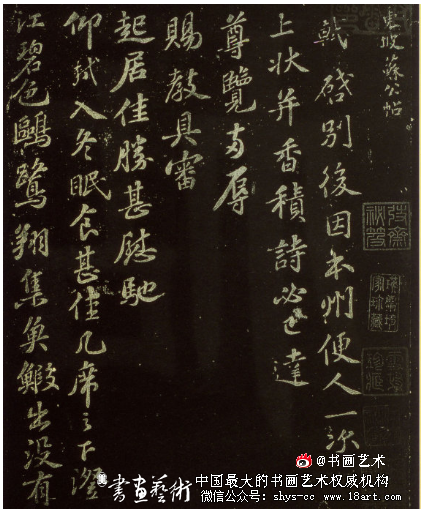 東坡蘇公帖
軾啟別後因本州便人一次
上狀并香積詩必已達
尊覽辱
賜教具審
起居佳勝甚慰馳
仰軾入冬眠食甚佳几席之下澄
江碧色鷗鷺翔集魚鰕出沒有
@书画艺术
書畫藝術
中国最大的书画艺术权威机构
微信公众号: shys-cc www.18art.com